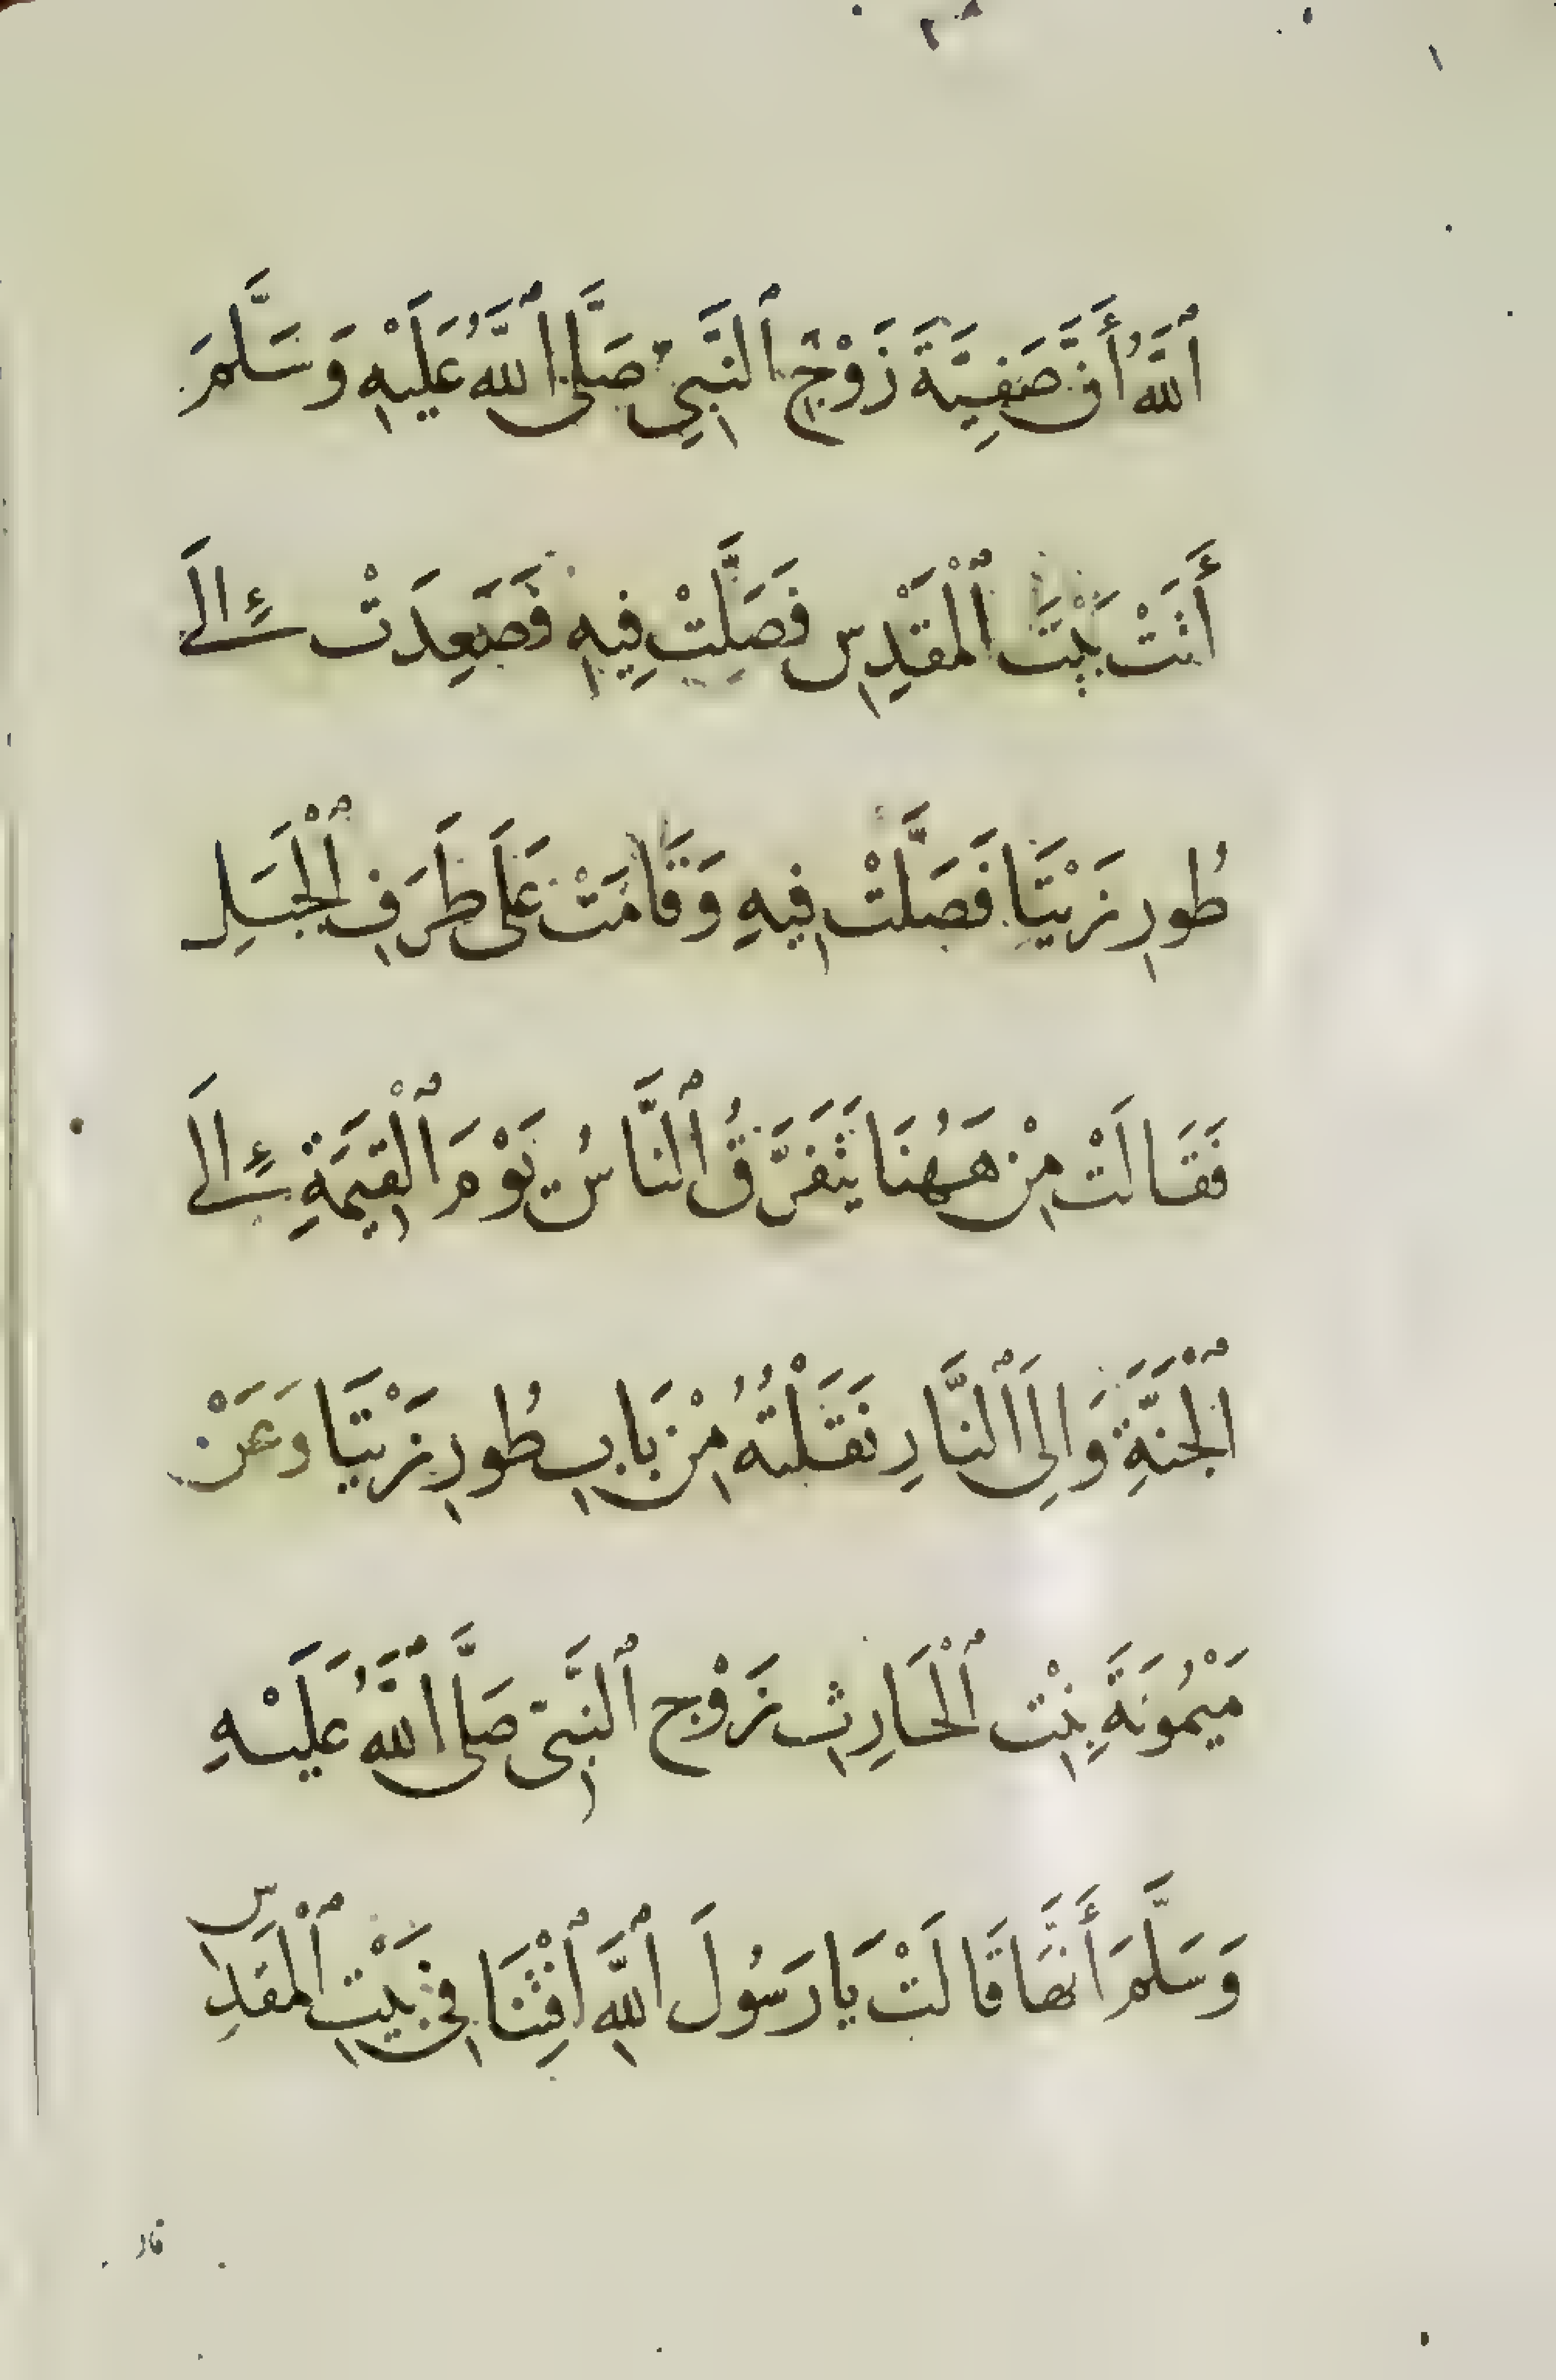 ٱللَّهُ أَنَّ صَفِيَّةَ زَوْجِ ٱلنَّبِيِ صَلَّى ٱللَّهُ عَلَيْهِ وَسَلَّمَ
أَتَتْ بَيْتَ ٱلْمَقْدِسِ فَصَلَّتْ فِيهِ فَصَعِدَتْ إِلَى
طُورِ زَيْتَا فَصَلَّتْ فِيهِ وَقَامَتْ عَلَى طَرَفِ ٱلْجَبَلِ
فَقَالَتْ مِنْ هَهُنَا يَتَفَرَّقُ ٱلنَّاسُ يَوْمَ ٱلْقِيَمَةِ إِلَى
ٱلْجَنَّةِ وَإِلَى ٱلنَّارِ نَقَلْتُهُ مِنْ بَابِ طُورِ زَيْتَا وَعَنْ
مَيْمُونَةَ بِنْتِ ٱلْحَارِثِ زَوْجِ ٱلنَّبِيِّ صَلَّى ٱللَّهُ عَلَيْهِ
وَسَلَّمَ أَنَّهَا قَالَتْ يَا رَسُولَ ٱللَّهِ أَفْتِنَا فِي بَيْتِ ٱلْمَقْدِسِ
قال